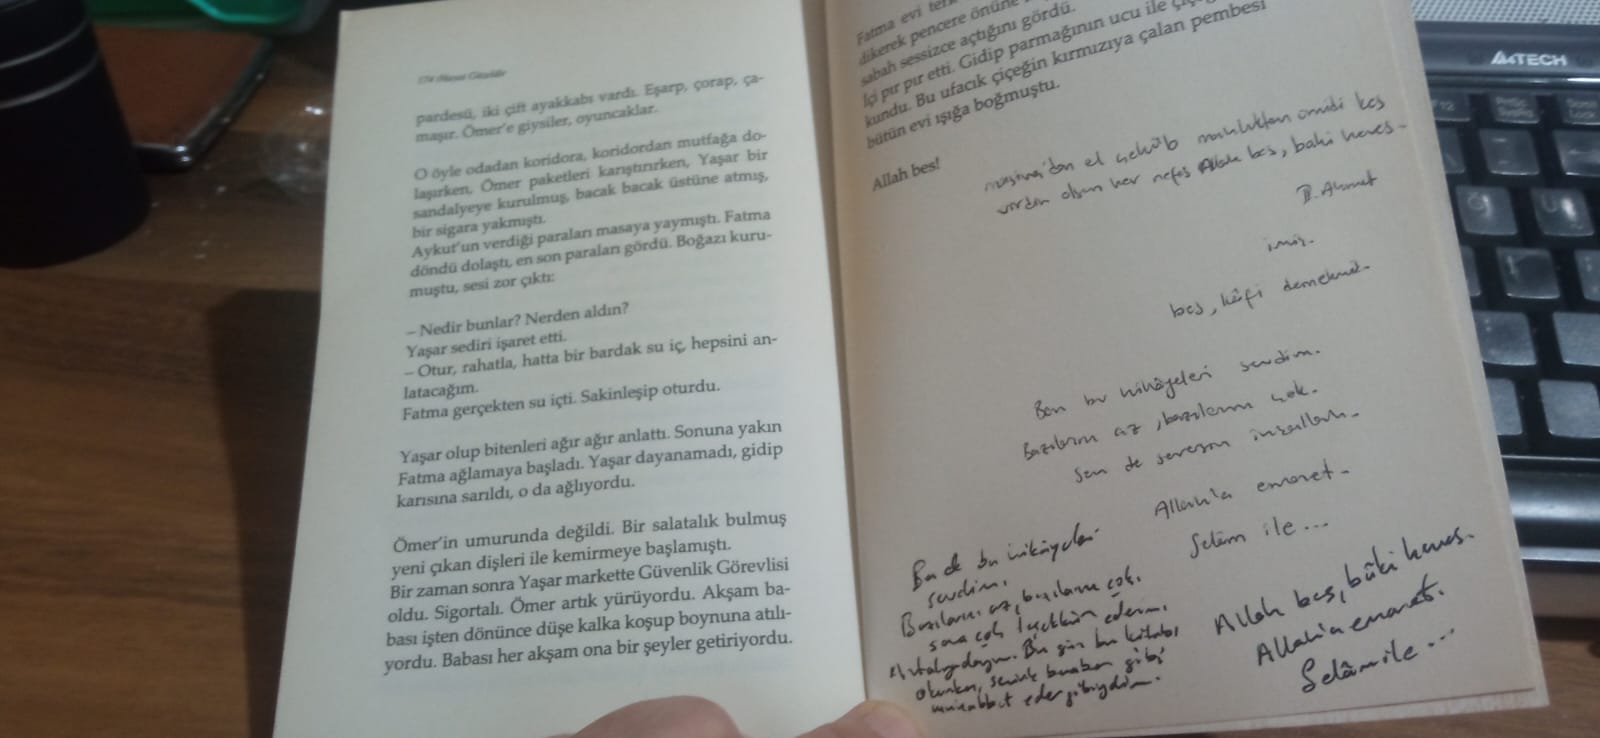 174 Hayat Güzeldir
pardesü, iki çift ayakkabı vardı. Eşarp, çorap, ça-
maşır. Ömer'e giysiler, oyuncaklar.
O öyle odadan koridora, koridordan mutfağa do-
laşırken, Ömer paketleri karıştırırken, Yaşar bir
sandalyeye kurulmuş, bacak bacak üstüne atmış,
bir sigara yakmıştı.
Aykut'un verdiği paraları masaya yaymıştı. Fatma
döndü dolaştı, en son paraları gördü. Boğazı kuru-
muştu, sesi zor çıktı:
– Nedir bunlar? Nerden aldın?
Yaşar sediri işaret etti.
– Otur, rahatla, hatta bir bardak su iç, hepsini an-
latacağım.
Fatma gerçekten su içti. Sakinleşip oturdu.
Yaşar olup bitenleri ağır ağır anlattı. Sonuna yakın
Fatma ağlamaya başladı. Yaşar dayanamadı, gidip
karısına sarıldı, o da ağlıyordu.
Ömer'in umurunda değildi. Bir salatalık bulmuş
yeni çıkan dişleri ile kemirmeye başlamıştı.
Bir zaman sonra Yaşar markette Güvenlik Görevlisi
oldu. Sigortalı. Ömer artık yürüyordu. Akşam ba-
bası işten dönünce düşe kalka koşup boynuna atılı-
yordu. Babası her akşam ona bir şeyler getiriyordu.
Fatma evi
dikerek pencere önüne
sabah sessizce açtığını gördü.
İçi pır pır etti. Gidip parmağının ucu ile
kundu. Bu ufacık çiçeğin kırmızıya çalan pembesi
bütün evi ışığa boğmuştu.
Allah bes!
el çeküb mahluktan ümidi kes
virdin olsun her nefes Allah bes, baki heves-
Ahmet
imiş.
bes, kâfi demekmiş.
Ben bu hikâyeleri sevdim.
Bazılarını az, bazılarını çok.
Sen de seversin inşallah.
Allah'a emanet.
Selâm ile...
Ben de bu hikâyeleri
sevdim.
Bazılarını az, bazılarını çok.
sana çok teşekkür ederim.
Antalyadayım. Bu gün bu kitabı
okurken, seninle beraber gibi
muhabbet eder gibiydim.
Allah bes, bâki heves.
Allah'a emanet.
Selâm ile...
A4TECH
F12
PrtSc
SysRq
Scroll
Lock
Ğ
Ü